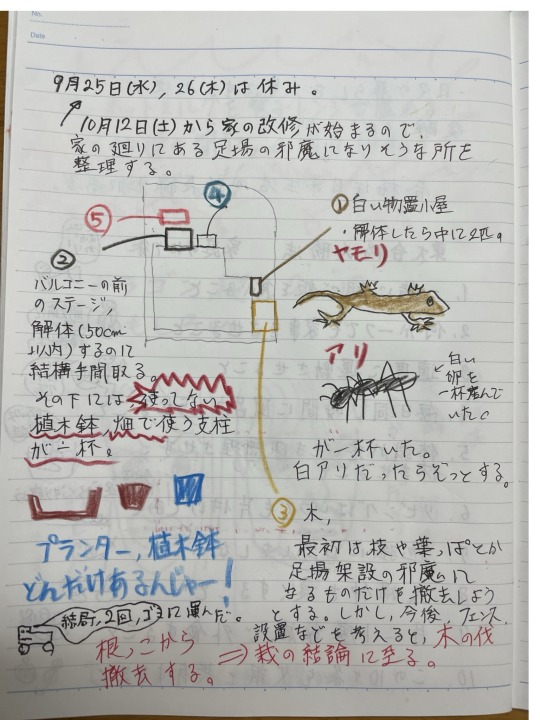 No.
Date
9月25日(水), 26(木)は休み。
10月12日(土)から家の改修が始まるので、
家の廻りにある足場の邪魔になりそうな所を
整理する。
① 白い物置小屋
・解体したら中に2匹。
ヤモリ
④
⑤
②
バルコニーの前
のステージ,
解体(50cm
以内)するのに
結構手間取る。
その下には,使ってない
植木鉢,畑で使う支柱
が一杯。
アリ
白い
卵を
一杯産んで
いた。
が一杯いた。
白アリだったらぞっとする。
プランター,植木鉢
どんだけあるんじゃー!
結局,2回,ゴミに運んだ。
③ 木,
最初は枝や葉っぱとか
足場架設の邪魔に
なるものだけを撤去しよう
とする。しかし,今後 フェンス
設置などを考えると,木の伐
根っこから
撤去する。
⇒ 栽の結論に至る。